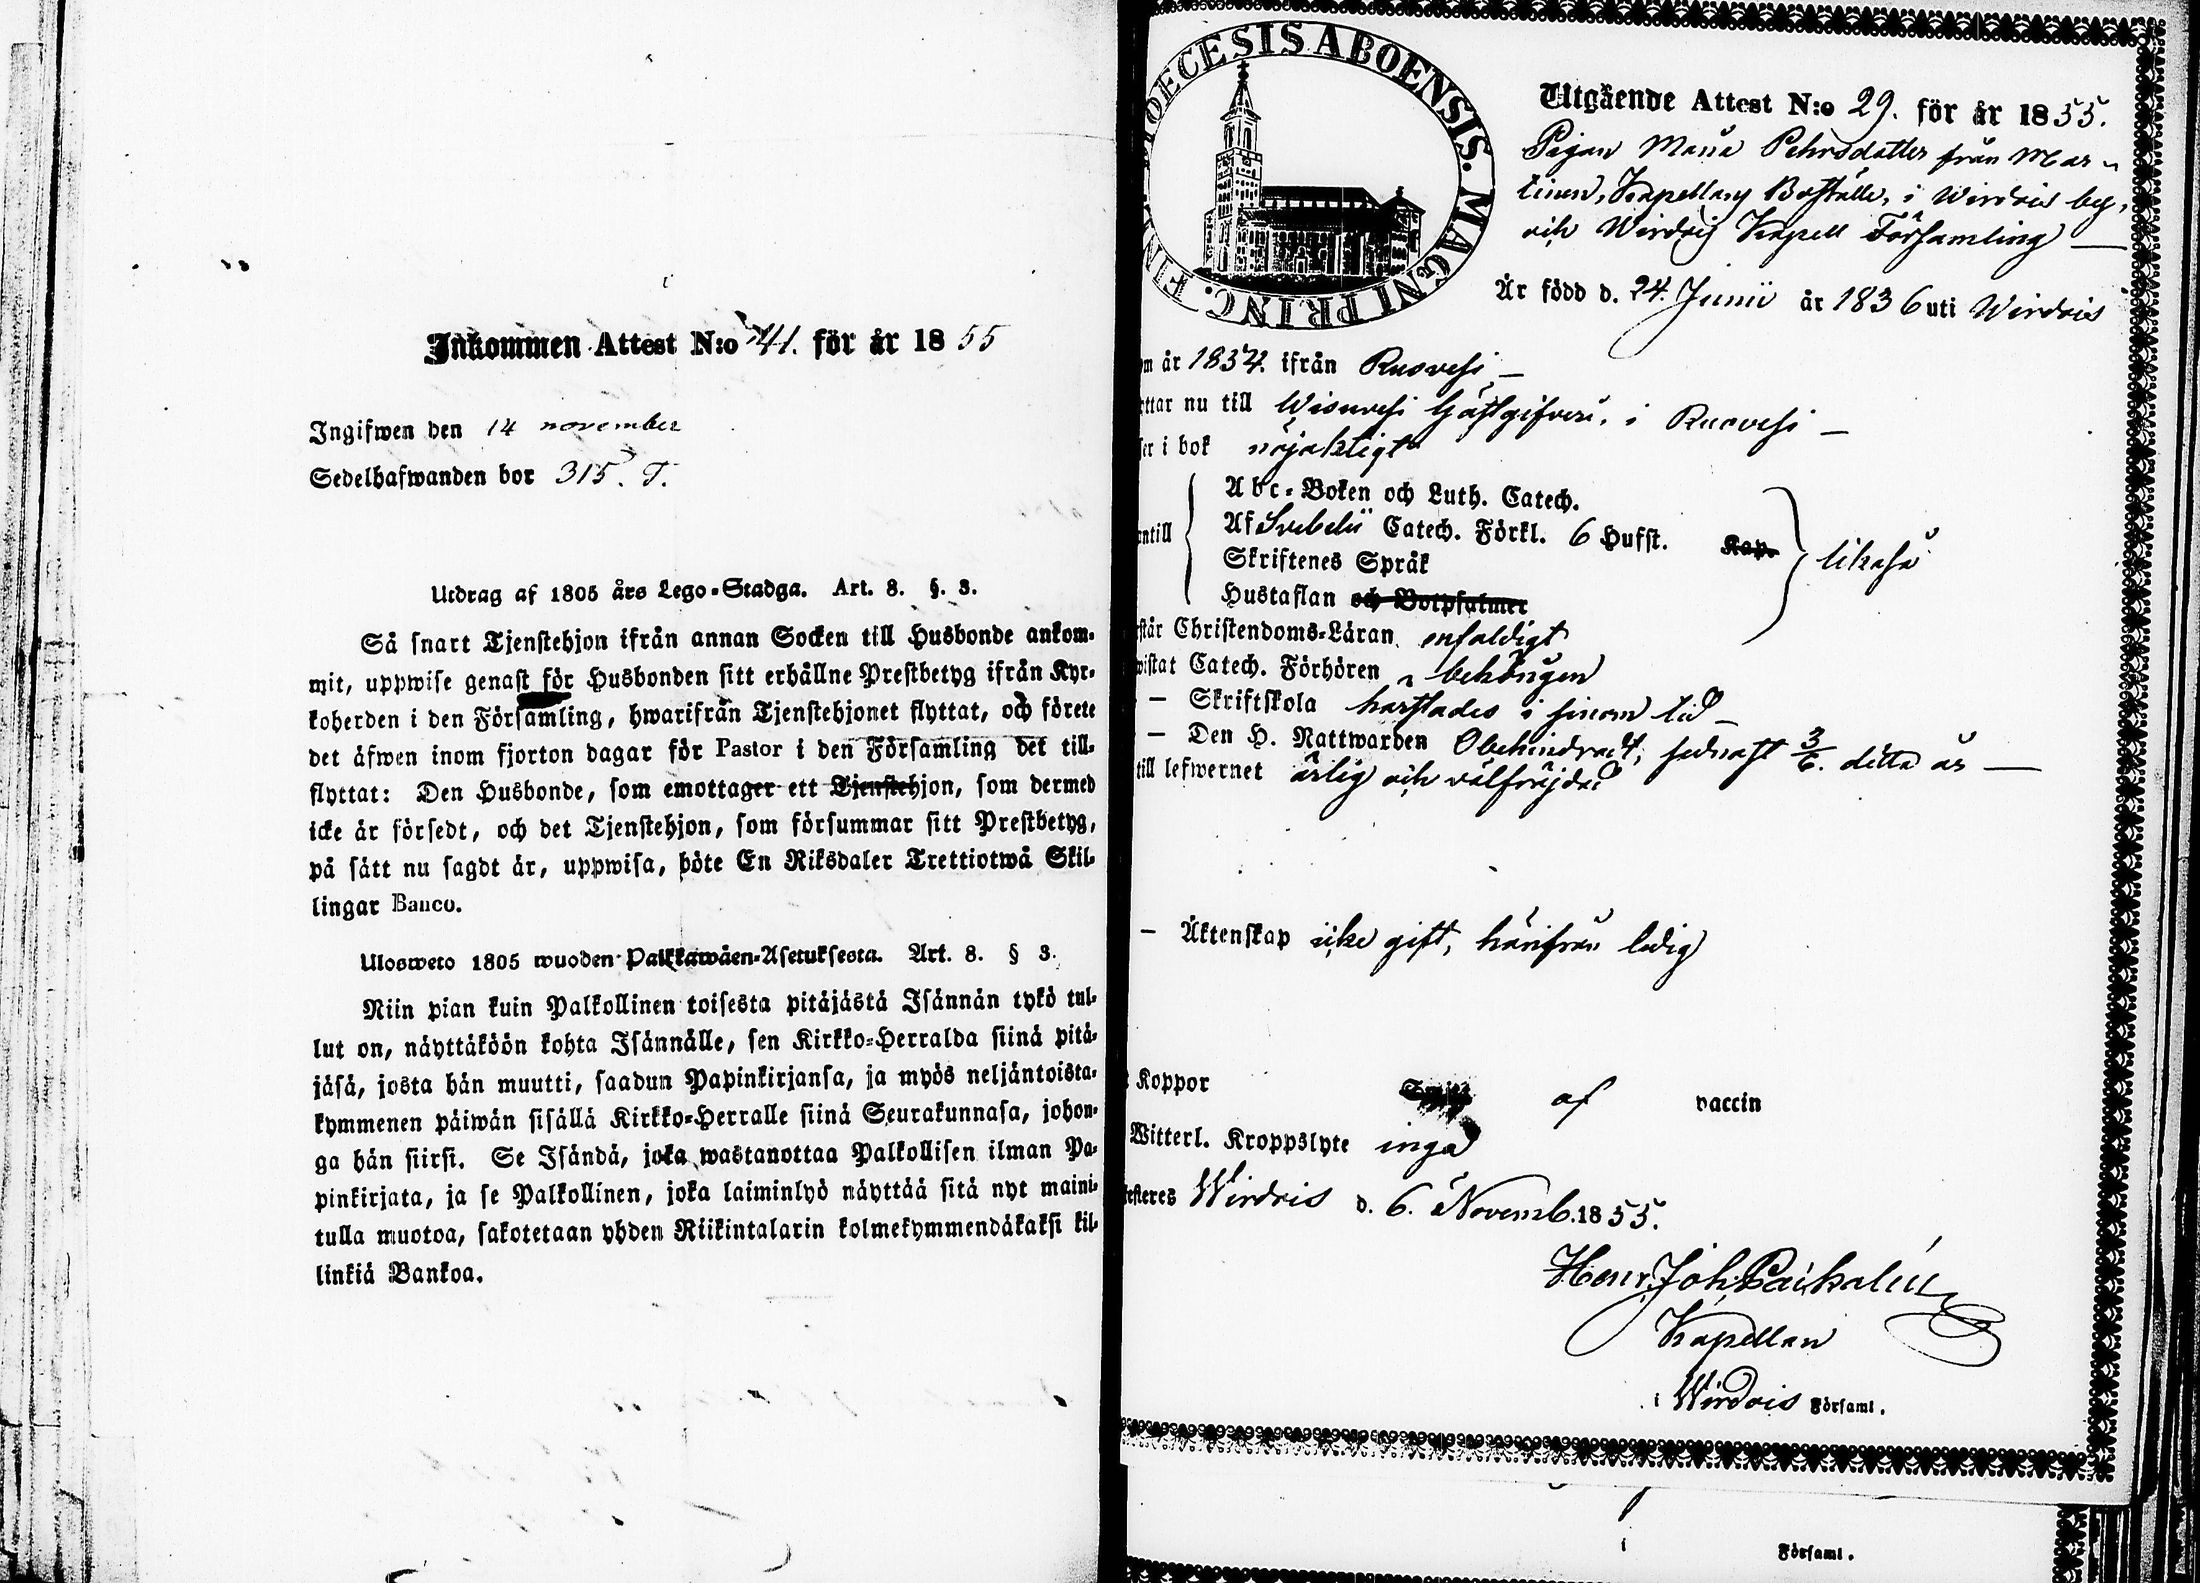 Inkommen Attest N:o 41. för år 1855
Ingifwen den 14 november
Sedelhafwanden bor 315. T.
Utdrag af 1805 års Lego-Stadga. Art. 8. §. 3.
Så snart Tjenstehjon ifrån annan Socken till Husbonde ankom-
mit, uppwise genast för Husbonden sitt erhållne Prestbetyg ifrån Kyr-
koherden i den Församling, hwarifrån Tjenstehjonet flyttat, och förete
det äfwen inom fjorton dagar för Pastor i den Församling det till-
flyttat: Den Husbonde, som emottager ett Tjenstehjon, som dermed
icke är försedt, och det Tjenstehjon, som försummar sitt Prestbetyg,
på sätt nu sagdt är, uppwisa, böte En Riksdaler Trettiotwå Skil-
lingar Banco.
Ulosweto 1805 wuoden Palkkawäen-Asetuksesta. Art. 8. § 3.
Niin pian kuin Palkollinen toisesta pitäjästä Isännän tykö tul-
lut on, näyttäköön kohta Isännälle, sen Kirkko-Herralda siinä pitä-
jäsä, josta hän muutti, saadun Papinkirjansa, ja myös neljäntoista-
kymmenen päiwän sisällä Kirkko-Herralle siinä Seurakunnasa, johon-
ga hän siirsi. Se Isändä, joka wastanottaa Palkollisen ilman Pa-
pinkirjata, ja se Palkollinen, joka laiminlyö näyttää sitä nyt maini-
tulla muotoa, sakotetaan yhden Riikintalarin kolmekymmendäkaksi kil-
linkiä Bankoa.
DIOECESIS ABOENSIS. MAGNI PRINC. FINL.
Utgående Attest N:o 29. för år 1855.
Pigan Maria Pehrsdotter från Mar-
tinen, Kapellans Boställe, i Wirdois by,
och Wirdois Kapell Församling
Är född d. 24. Junii år 1836 uti Wirdois
om år 1854. ifrån Ruovesi
ttar nu till Wisuvesi Gästgifveri, i Ruovesi
ser i bok nöjaktigt
Abc-Boken och Luth. Catech.
antill Af Svebelii Catech. Förkl. 6 Hufst. Kap. likaså
Skriftenes Språk
Hustaflan och Botpsalmer
rstår Christendoms-Läran enfaldigt
wistat Catech. Förhören behörigen
— Skriftskola i sinom tid
— Den H. Nattwarden Obehindradt, sednast 3/6. detta år
till lefwernet ärlig och välfräjdad
— Äktenskap icke gift, härifrån ledig
Koppor af vaccin
Witterl. Kroppslyte inga
testeres Wirdois d. 6. Novemb. 1855.
Henr. Joh. Paikalin
Kapellan
i Wirdois Församl.
i
Församl.